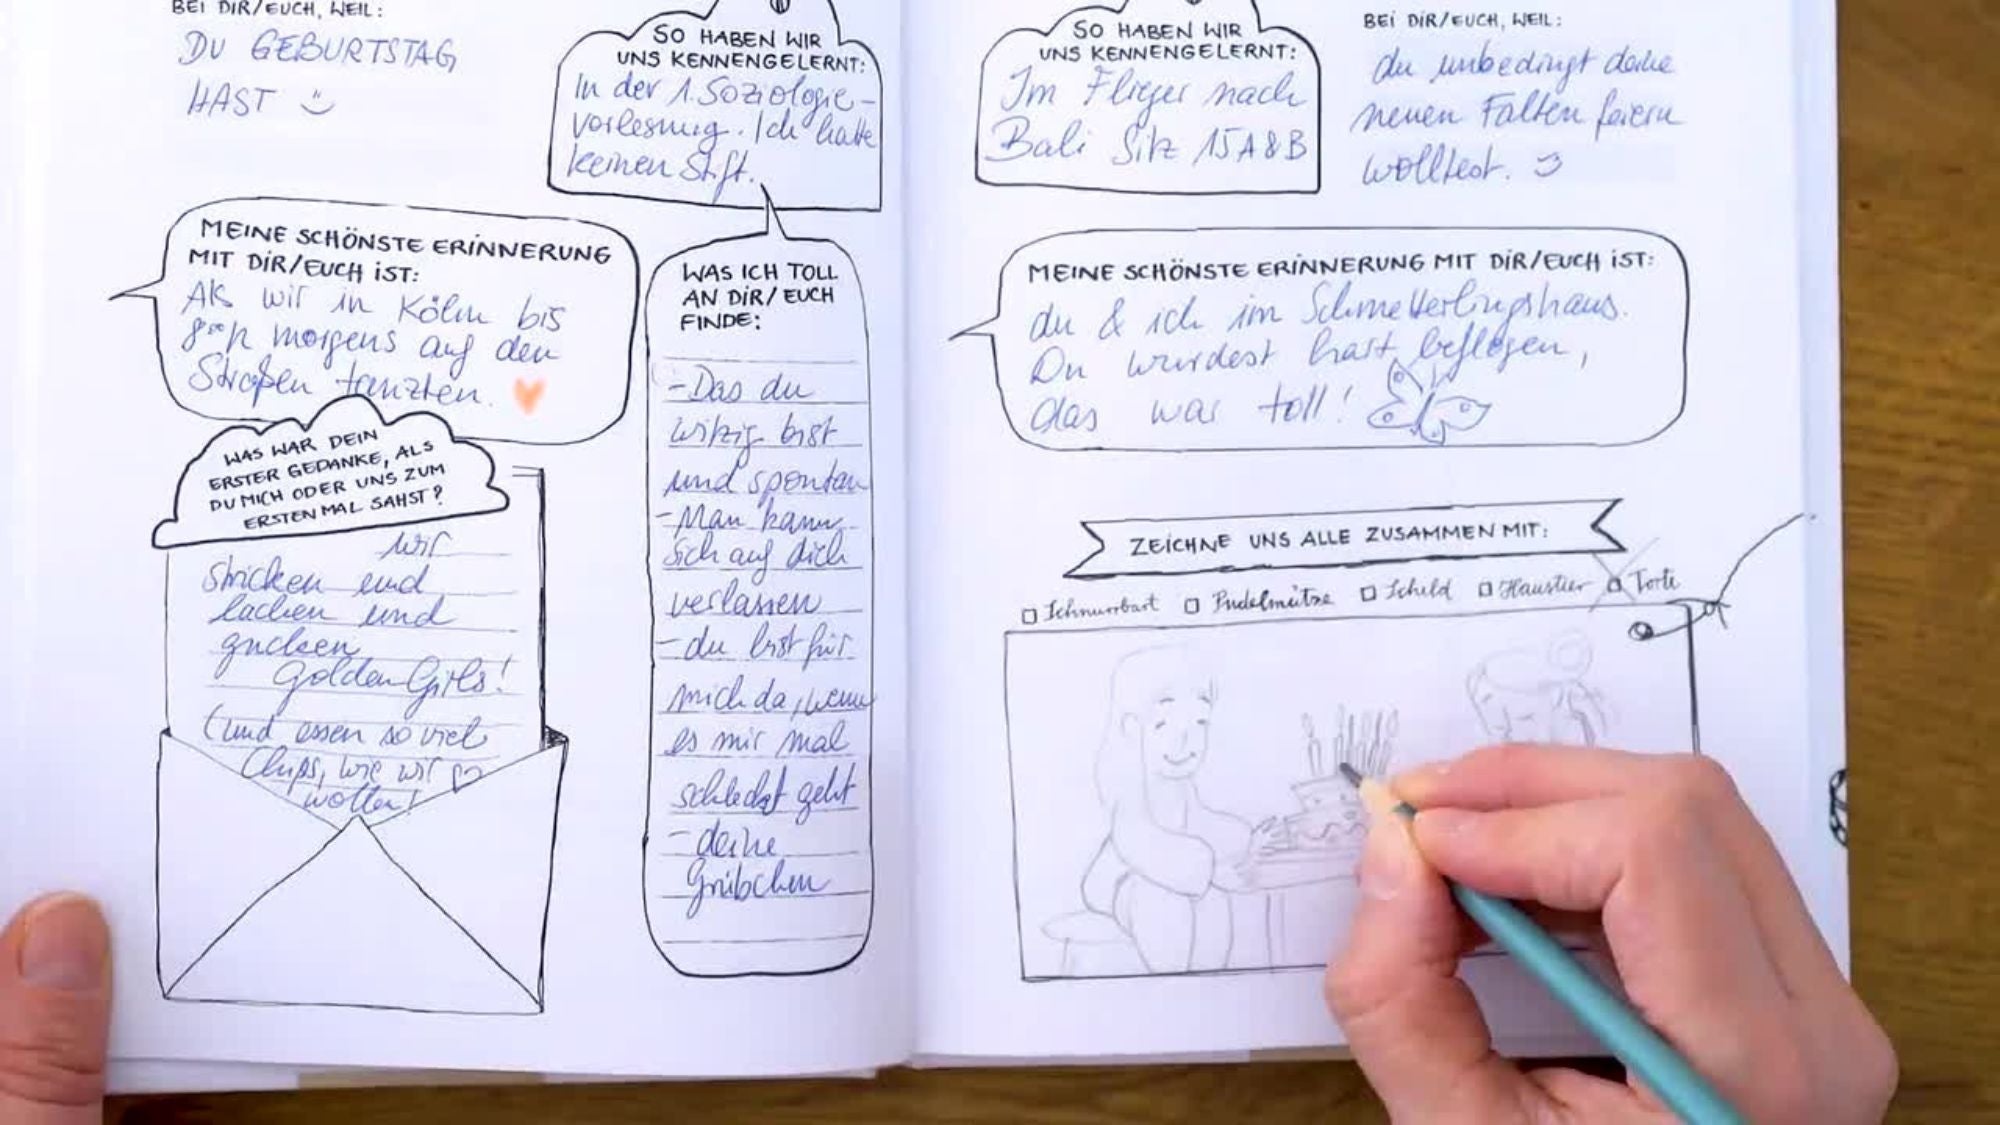 BEI DIR/EUCH, WEIL:
DU GEBURTSTAG
HAST
SO HABEN WIR
UNS KENNENGELERNT:
In der 1. Soziologie-
vorlesung. Ich hatte
keinen Stift.
MEINE SCHÖNSTE ERINNERUNG
MIT DIR/EUCH IST:
Als wir in Köln bis
8°°h morgens auf den
Straßen tanzten.
WAS WAR DEIN
ERSTER GEDANKE, ALS
DU MICH ODER UNS ZUM
ERSTEN MAL SAHST?
wir
stricken und
lachen und
gucken
Golden Girls!
(und essen so viel
Chips, wie wir
wollen!
WAS ICH TOLL
AN DIR/EUCH
FINDE:
- Das du
witzig bist
und spontan
- Man kann
sich auf dich
verlassen
- du bist für
mich da, wenn
es mir mal
schlecht geht
- deine
Grübchen
SO HABEN WIR
UNS KENNENGELERNT:
Im Flieger nach
Bali Sitz 15A&B
BEI DIR/EUCH, WEIL:
du unbedingt deine
neuen Falten feiern
wolltest.
MEINE SCHÖNSTE ERINNERUNG MIT DIR/EUCH IST:
du & ich im Schmetterlingshaus.
Du wurdest hart beflogen,
das war toll!
ZEICHNE UNS ALLE ZUSAMMEN MIT:
Schnurrbart Pudelmütze Schild Haustier Torte